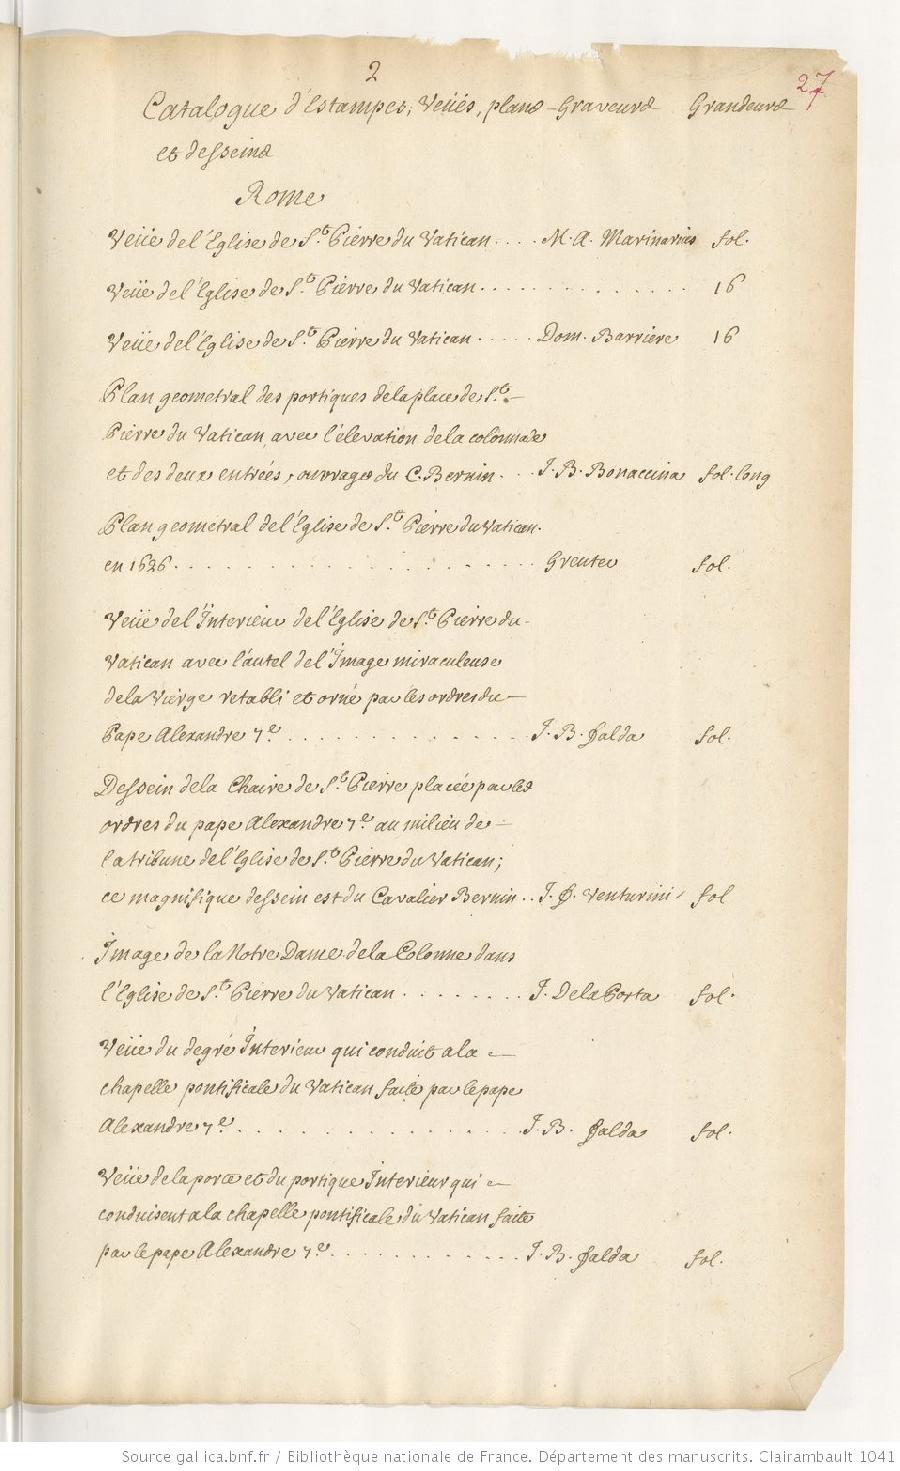 2
27
Catalogue d'Estampes, Veües, plans Graveurs Grandeurs
et desseins
Rome
Veüe de l'Eglise de St. Pierre du Vatican .... M. A. Marinarius fol.
Veüe de l'Eglise de St. Pierre du Vatican . . . . . . . . . . . . 16
Veüe de l'Eglise de St. Pierre du Vatican ..... Dom. Barriere 16
Plan geometral des portiques de la place de St. –
Pierre du Vatican avec l'élevation de la colonnade
et des deux entrées, ouvrages du C. Bernin ... J. B. Bonaccina fol. long
Plan geometral de l'Eglise de St. Pierre du Vatican.
en 1626 . . . . . . . . . . . . . . . . Greuter fol.
Veüe de l'Interieur de l'Eglise de St. Pierre du –
Vatican avec l'autel de l'Image miraculeuse
de la Vierge retabli et orné par les ordres du –
Pape Alexandre 7e . . . . . . . . . . . J. B. Falda fol.
Dessein de la Chaire de St. Pierre placée par les
ordres du pape Alexandre 7e au milieu de –
la tribune de l'Eglise de St. Pierre du Vatican;
ce magnifique dessein est du Cavalier Bernin .. J. F. Venturini fol
Image de la Notre Dame de la Colonne dans
l'Eglise de St. Pierre du Vatican . . . . . . . J. De la Porta fol.
Veüe du degré Interieur qui conduit a la –
chapelle pontificale du Vatican faite par le pape
Alexandre 7e . . . . . . . . . . . . . J. B. Falda fol.
Veüe de la porte et du portique Interieur qui –
conduisent a la chapelle pontificale du Vatican faite
par le pape Alexandre 7e . . . . . . . . . . J. B. Falda fol.
Source gallica.bnf.fr / Bibliothèque nationale de France. Département des manuscrits. Clairambault 1041